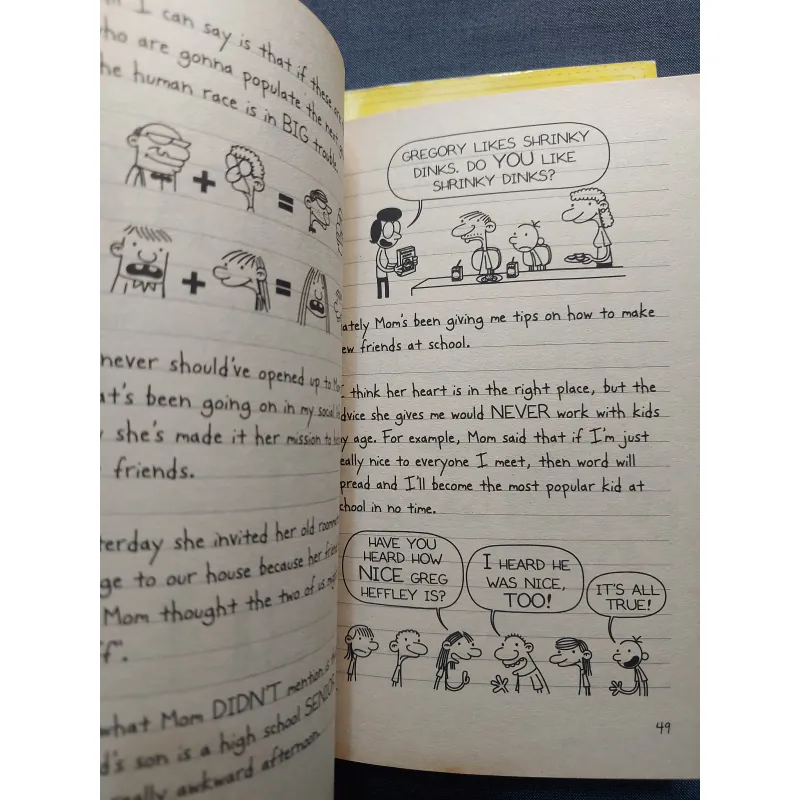 I can say is that if these are
who are gonna populate the next
the human race is in BIG trouble.
+
=
+
=
never should've opened up to
what's been going on in my social
she's made it her mission to
friends.
she invited her old
to our house because her
Mom thought the two of us
what Mom DIDN'T mention is
son is a high school SENIOR
really awkward afternoon.
GREGORY LIKES SHRINKY
DINKS. DO YOU LIKE
SHRINKY DINKS?
ately Mom's been giving me tips on how to make
ew friends at school.
I think her heart is in the right place, but the
dvice she gives me would NEVER work with kids
my age. For example, Mom said that if I'm just
eally nice to everyone I meet, then word will
pread and I'll become the most popular kid at
chool in no time.
HAVE YOU
HEARD HOW
NICE GREG
HEFFLEY IS?
I HEARD HE
WAS NICE,
TOO!
IT'S ALL
TRUE!
49